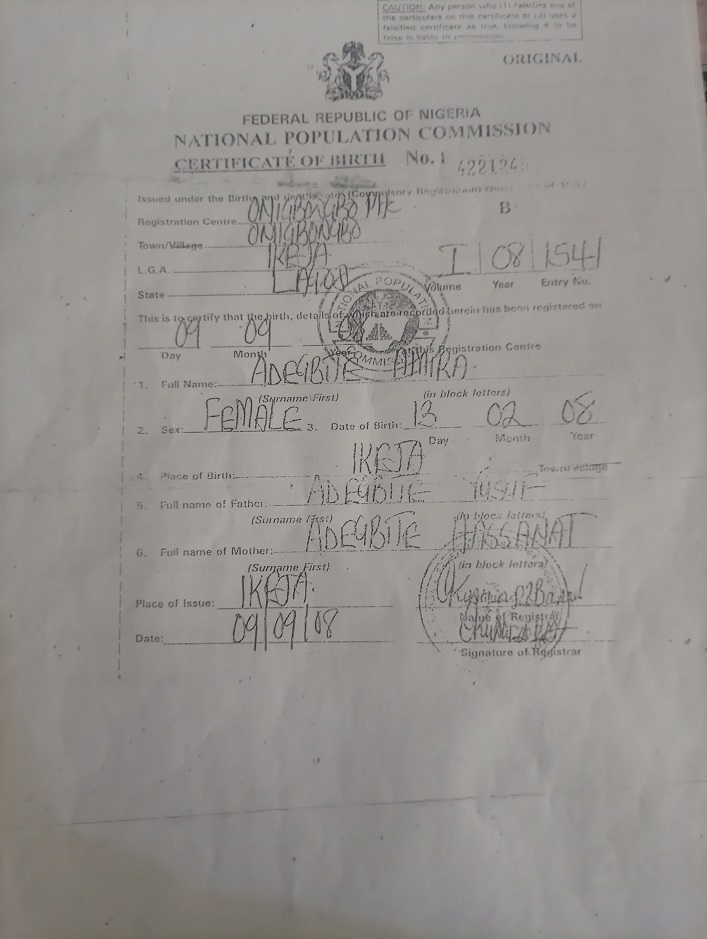 CAUTION: Any person who (1) falsifies any of
the particulars on this certificate or (2) uses a
falsified certificate as true, knowing it to be
false is liable to prosecution.
ORIGINAL
FEDERAL REPUBLIC OF NIGERIA
NATIONAL POPULATION COMMISSION
CERTIFICATE OF BIRTH No. 1
Issued under the Births and (Compulsory Registration)
Registration Centre ONIGBONGBO
B
Town/Village ONIGBONGBO
L.G.A. IKEJA
I 08 1541
Volume Year Entry No.
State LAGOS
NATIONAL POPULATION COMMISSION
This is to certify that the birth, details of which are recorded herein has been registered on
09 09 08
Day Month Year at this Registration Centre
1. Full Name: ADEGBITE
(Surname First) (in block letters)
2. Sex: FEMALE 3. Date of Birth: 13 02 08
Day Month Year
4. Place of Birth: IKEJA
Town/Village
5. Full name of Father: ADEGBITE YUSUF
(Surname First) (in block letters)
6. Full name of Mother: ADEGBITE HASSANAT
(Surname First) (in block letters)
Place of Issue: IKEJA
Name of Registrar
Date: 09/09/08
Signature of Registrar